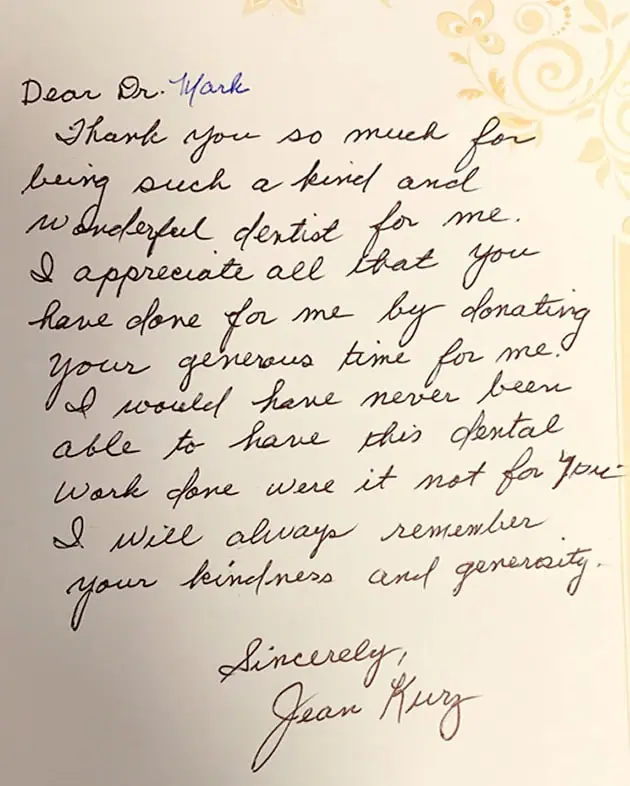 Dear Dr. Mark
Thank you so much for
being such a kind and
wonderful dentist for me.
I appreciate all that you
have done for me by donating
your generous time for me.
I would have never been
able to have this dental
work done were it not for you.
I will always remember
your kindness and generosity.
Sincerely,
Jean Kurz